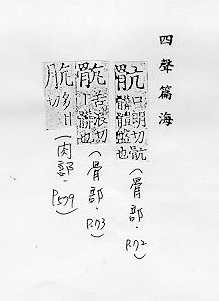 四聲篇海
骯口朗切骯
髒體盤也
(骨部.P.172)
骯苦浪切
髒也
(骨部.P.173)
肮
切
(肉部.P579)